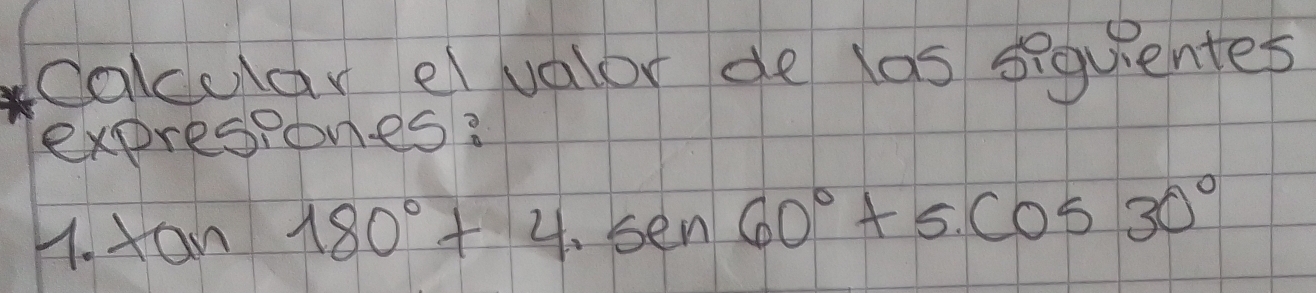 *Calcular el valor de las siguientes
expresiones:
1. tan 180° + 4. sen 60° + 5. cos 30°